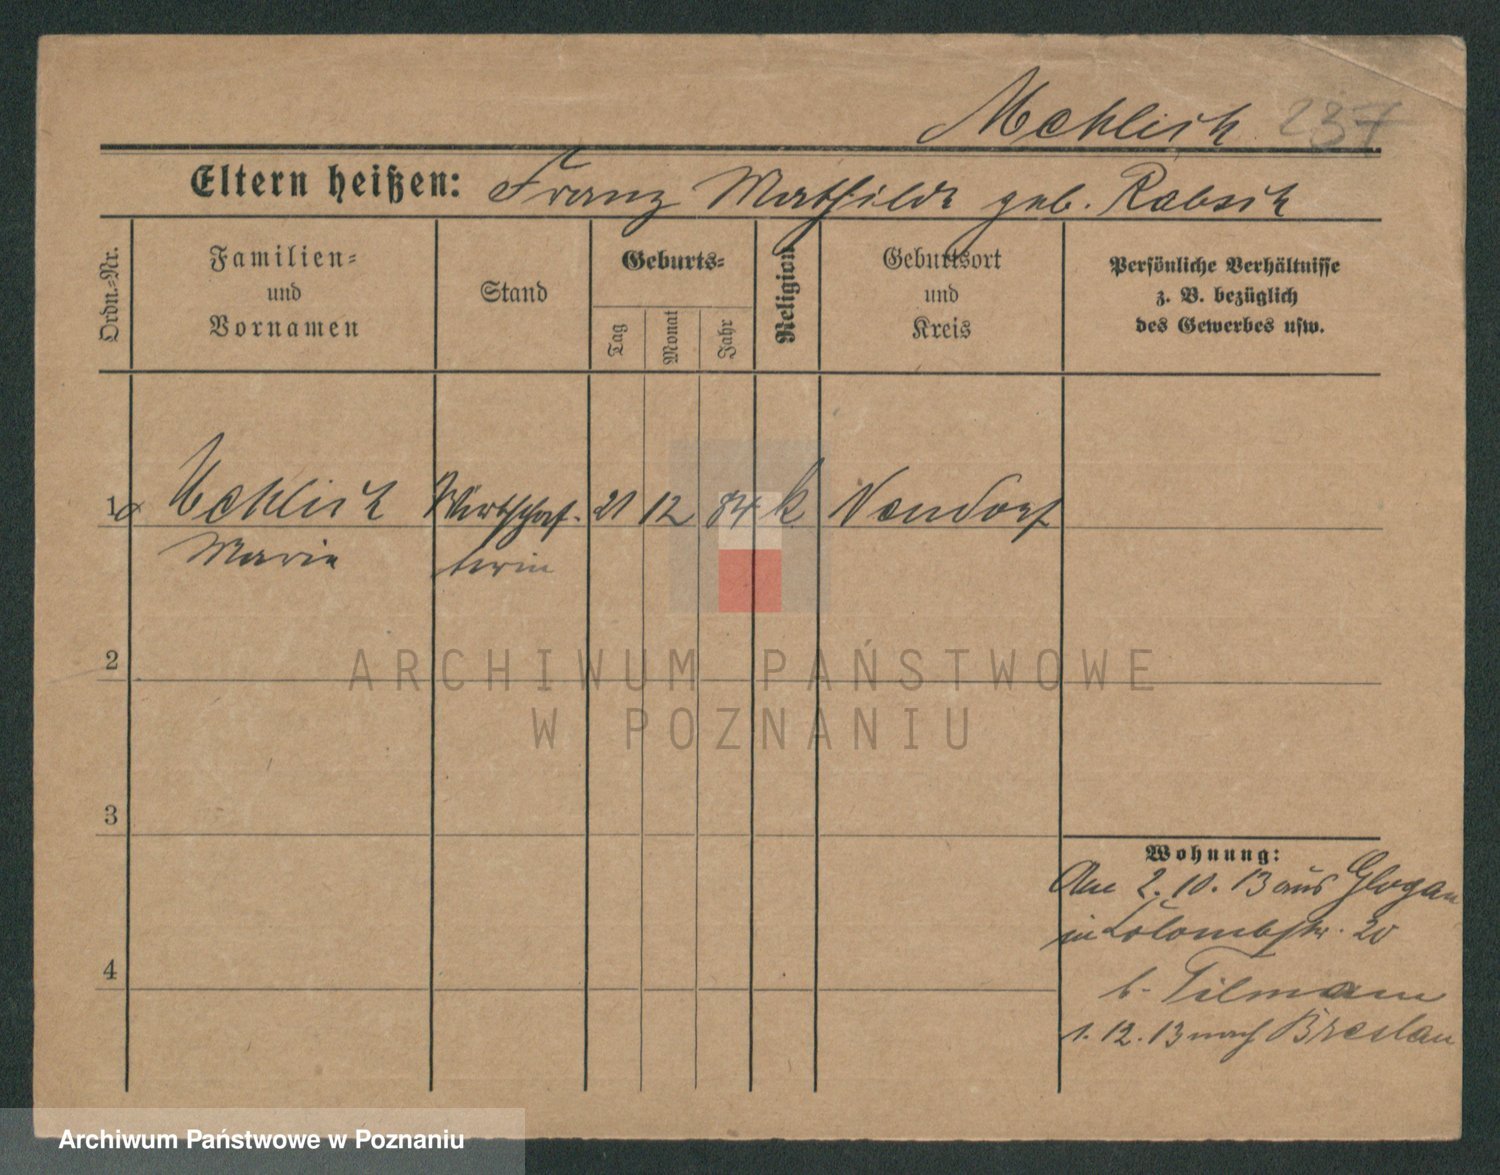 Mehlich 237
Eltern heißen: Franz Mathilde geb. Rabsch
Ordn.-Nr.
Familien- und Vornamen
Stand
Geburts-
Tag
Monat
Jahr
Religion
Geburtsort und Kreis
Persönliche Verhältnisse z. B. bezüglich des Gewerbes usw.
1 Mehlich Wirtschaf- 21 12 84 k Neudorf
Marie terin
2
ARCHIWUM PAŃSTWOWE
W POZNANIU
3
Wohnung:
Am 2.10.13 aus Glogau
in Colombstr. 20
b. Tilmann
4
1.12.13 nach Breslau
Archiwum Państwowe w Poznaniu